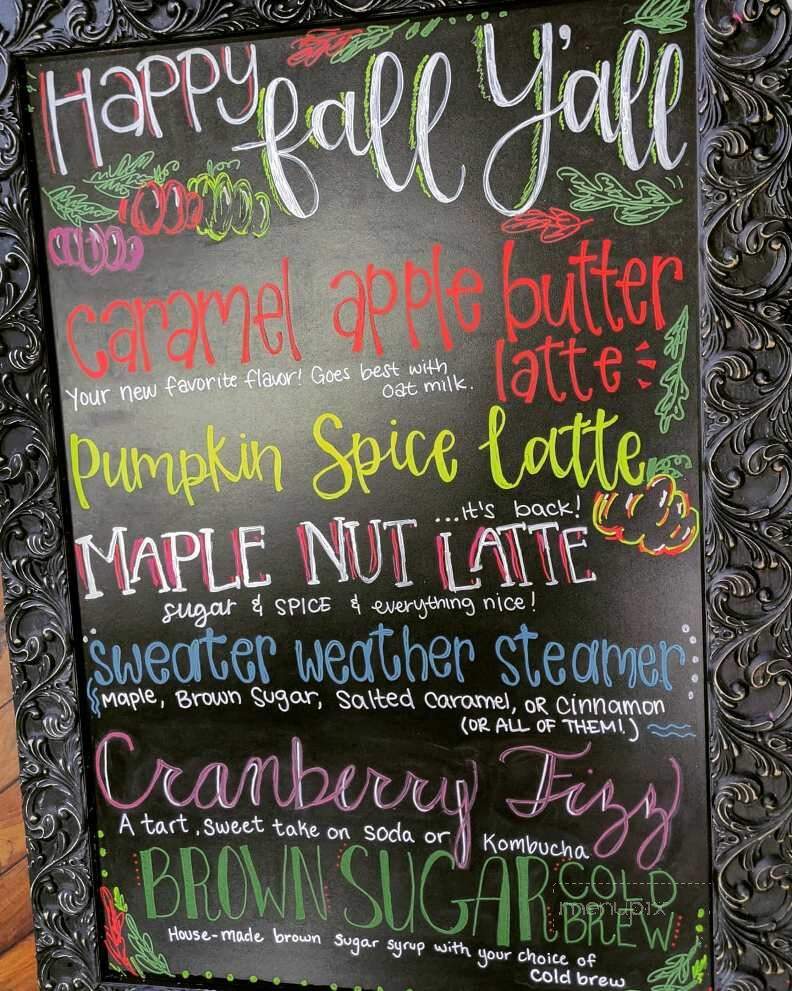 Happy fall Y'all
caramel apple butter
latte
Your new favorite flavor! Goes best with
oat milk.
Pumpkin Spice latte
...it's back!
MAPLE NUT LATTE
sugar & SPICE & everything nice!
sweater weather steamer
Maple, Brown Sugar, Salted Caramel, OR Cinnamon
(OR ALL OF THEM!)
Cranberry Fizz
A tart, sweet take on soda or Kombucha
BROWN SUGAR COLD
BREW
menupix
House-made brown sugar syrup with your choice of
cold brew